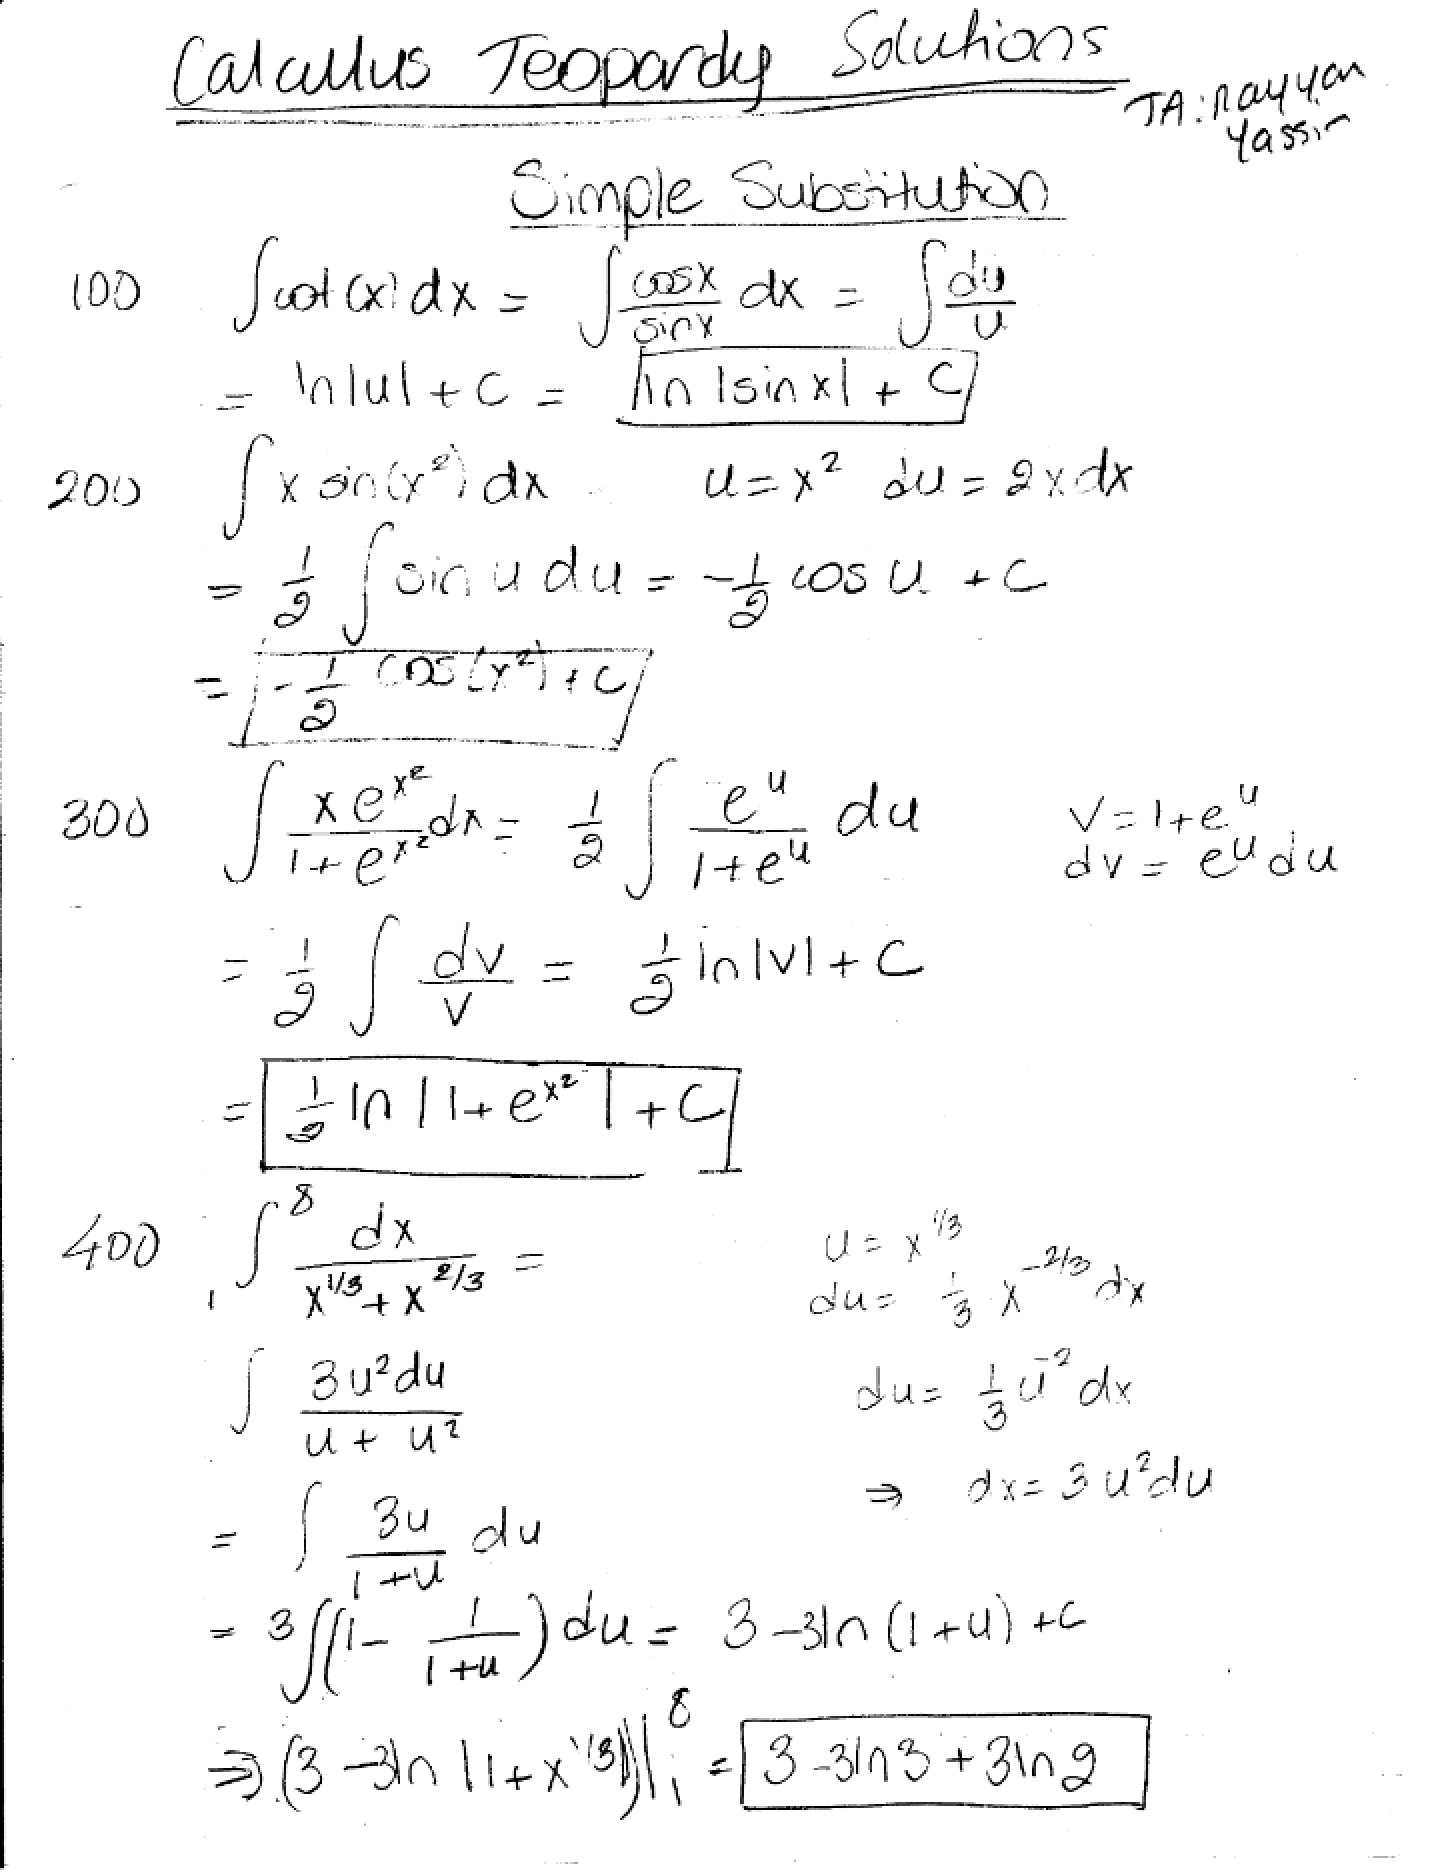 Calculus Jeopardy Solutions
TA: Rayyan
Yassin
Simple Substitution
100 ∫cot(x)dx = ∫ cosx/sinx dx = ∫ du/u
= ln|u| + C = ln |sin x| + C
200 ∫ x sin(x²) dx u = x² du = 2x dx
= 1/2 ∫ sin u du = -1/2 cos u + C
= -1/2 cos(x²) + C
300 ∫ xe^(x²)/(1+e^(x²)) dx = 1/2 ∫ e^u/(1+e^u) du V = 1+e^u
dv = e^u du
= 1/2 ∫ dv/v = 1/2 ln|v| + C
= 1/2 ln |1+e^(x²)| + C
400 ∫₁⁸ dx/(x^(1/3) + x^(2/3)) = u = x^(1/3)
du = 1/3 x^(-2/3) dx
∫ 3u²du/(u + u²) du = 1/3 u^(-2) dx
⇒ dx = 3u²du
= ∫ 3u/(1+u) du
= 3∫(1 - 1/(1+u)) du = 3 -3ln (1+u) + C
⇒ (3 -3ln |1+x^(1/3)|)|₁⁸ = 3 -3ln3 + 3ln2